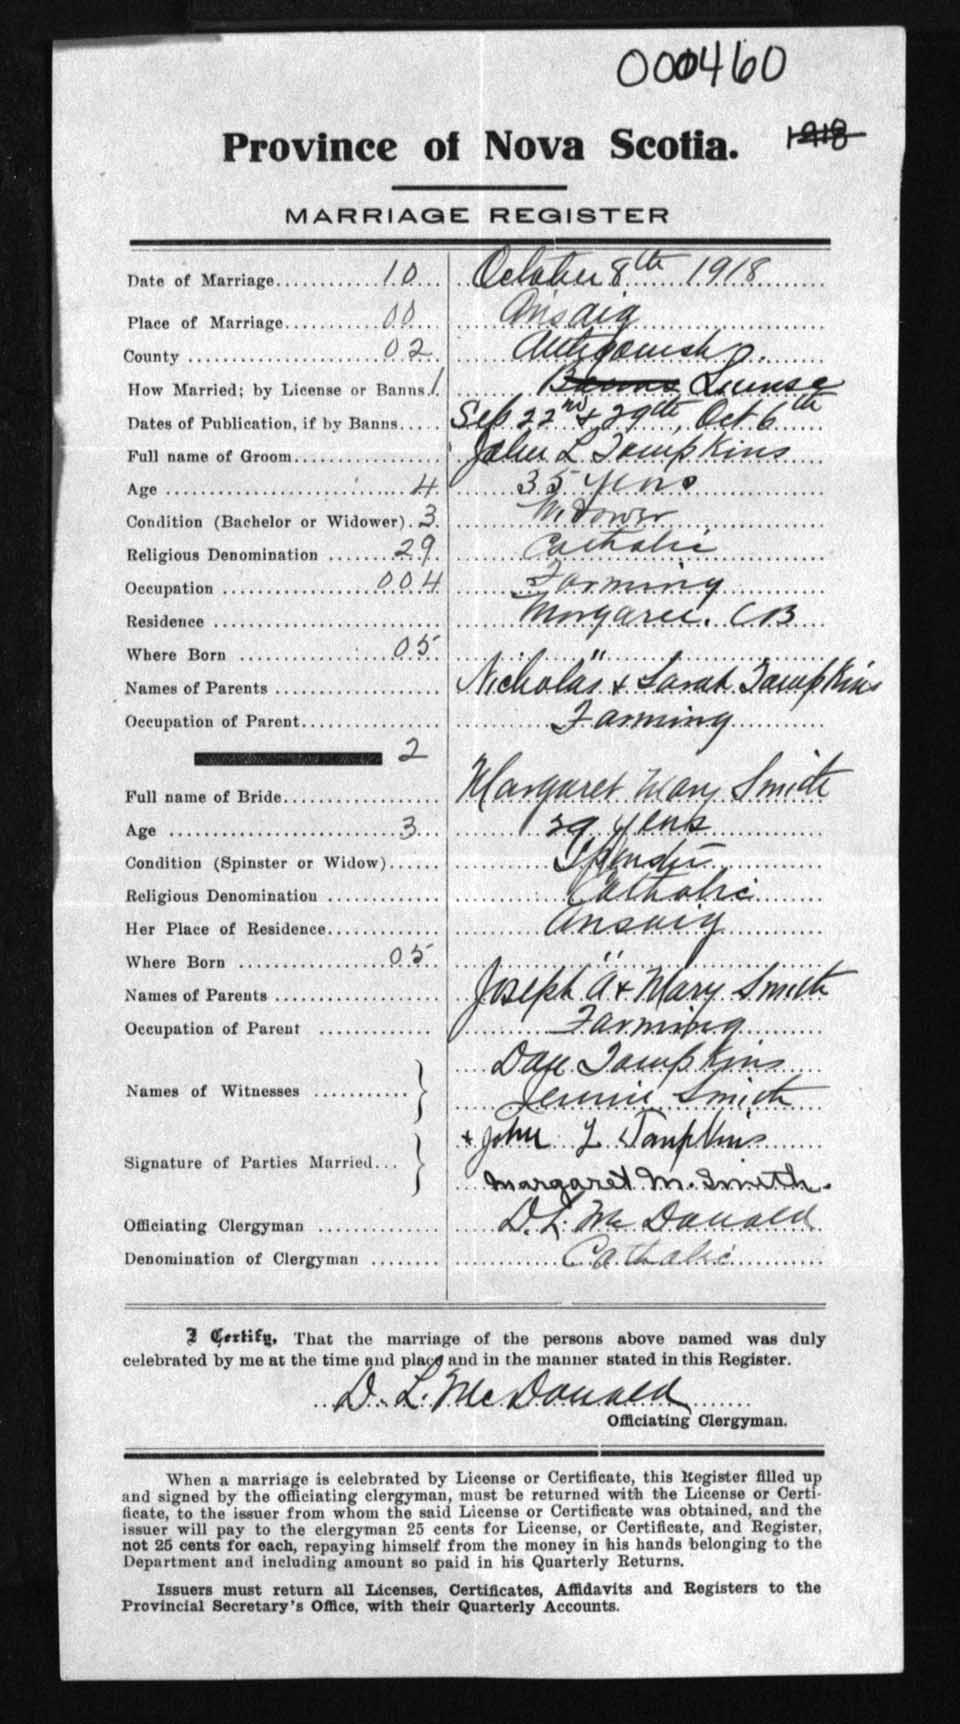 000460
Province of Nova Scotia. 1918
MARRIAGE REGISTER
Date of Marriage 10 October 8th 1918
Place of Marriage 00 Arisaig
County 02 Antigonish
How Married; by License or Banns 1 Banns License
Dates of Publication, if by Banns Sep 22nd & 29th, Oct 6th
Full name of Groom John L Tompkins
Age 4 35 years
Condition (Bachelor or Widower) 3 Widower
Religious Denomination 29 Catholic
Occupation 004 Farming
Residence Margaree. CB
Where Born 05 "
Names of Parents Nicholas & Sarah Tompkins
Occupation of Parent Farming
2
Full name of Bride Margaret Mary Smith
Age 3 29 years
Condition (Spinster or Widow) Spinster
Religious Denomination Catholic
Her Place of Residence Arisaig
Where Born 05 "
Names of Parents Joseph A & Mary Smith
Occupation of Parent Farming
Names of Witnesses } Dan Tompkins
Jennie Smith
Signature of Parties Married } + John L Tompkins
Margaret M. Smith.
Officiating Clergyman D. L. McDonald
Denomination of Clergyman Catholic
I Certify, That the marriage of the persons above named was duly
celebrated by me at the time and place and in the manner stated in this Register.
D. L. McDonald
Officiating Clergyman.
When a marriage is celebrated by License or Certificate, this Register filled up
and signed by the officiating clergyman, must be returned with the License or Certi-
ficate, to the issuer from whom the said License or Certificate was obtained, and the
issuer will pay to the clergyman 25 cents for License, or Certificate, and Register,
not 25 cents for each, repaying himself from the money in his hands belonging to the
Department and including amount so paid in his Quarterly Returns.
Issuers must return all Licenses, Certificates, Affidavits and Registers to the
Provincial Secretary's Office, with their Quarterly Accounts.